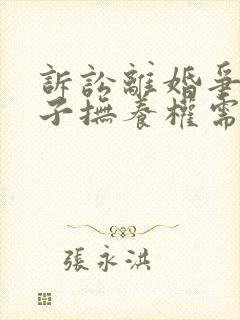 訴訟離婚爭
子撫養權需
張永洪